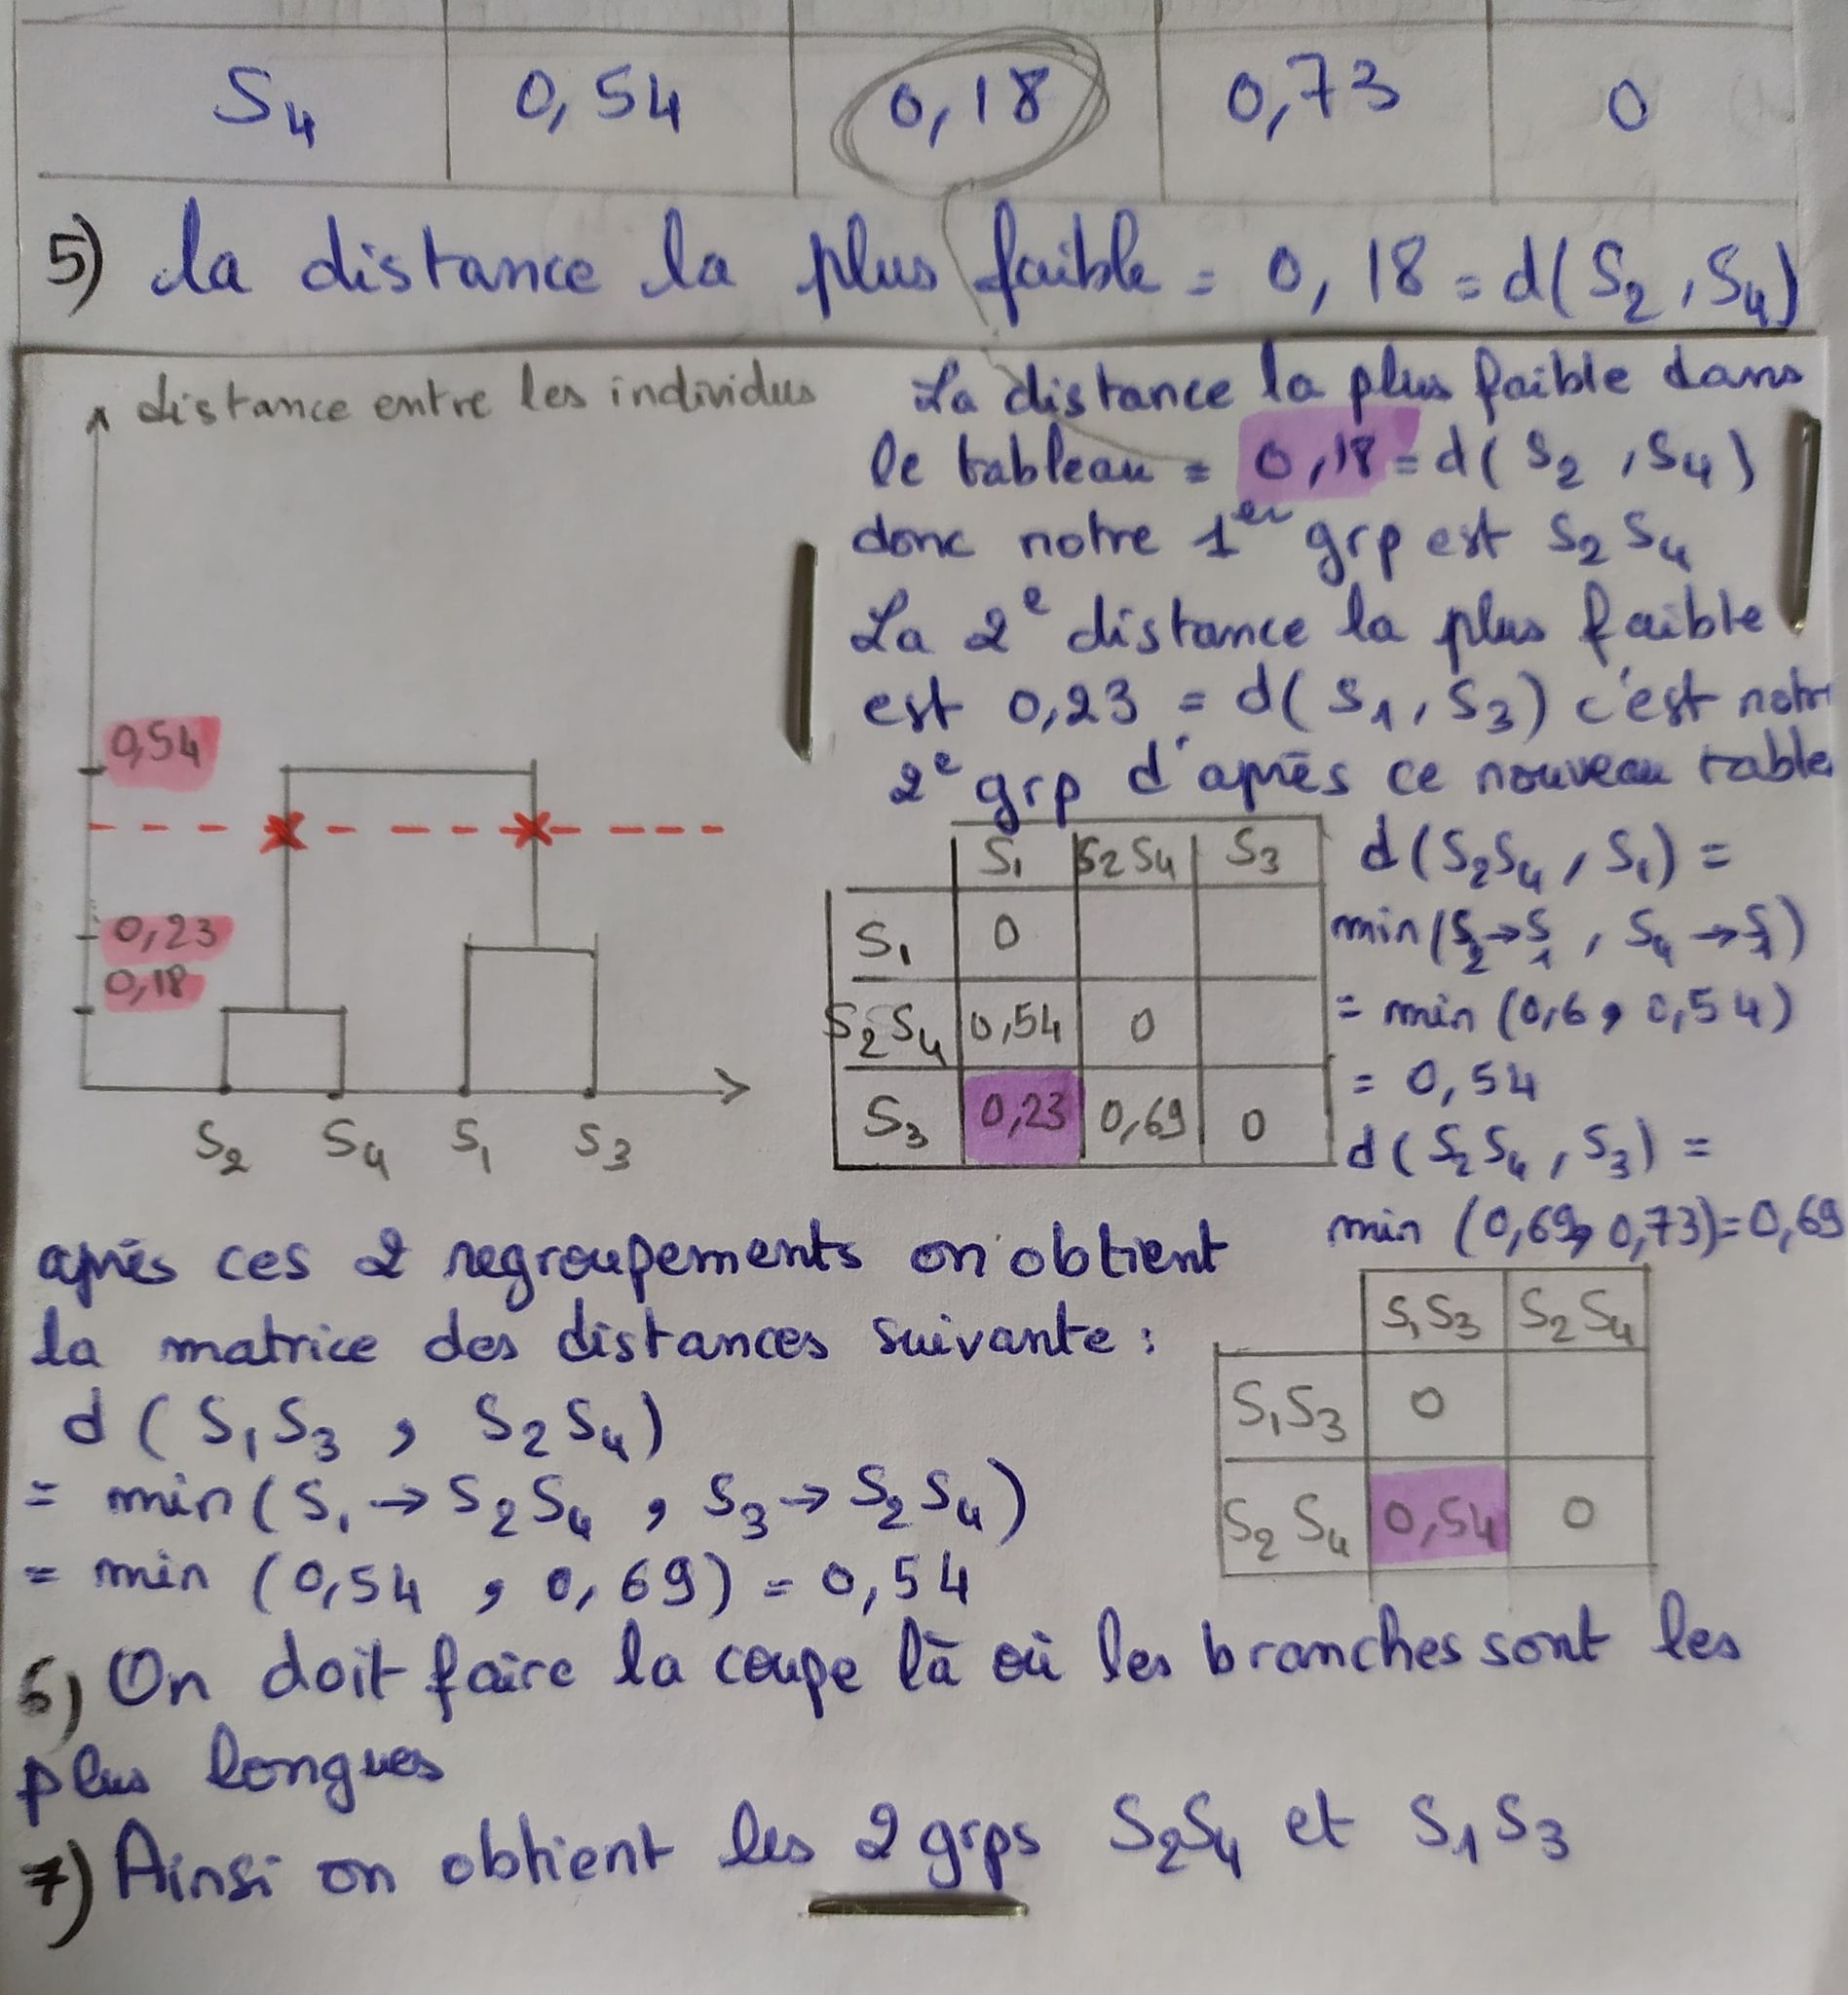 S4 0,54 0,18 0,73 0
5) la distance la plus faible = 0,18 = d(S2,S4)
distance entre les individus
0,54
0,23
0,18
S2 S4 S1 S3
La distance la plus faible dans
le tableau = 0,18 = d(S2,S4)
donc notre 1er grp est S2 S4
La 2e distance la plus faible
est 0,23 = d(S1,S3) c'est notr
2e grp d'après ce nouveau table
S1 S2S4 S3
S1 0
S2S4 0,54 0
S3 0,23 0,69 0
d(S2S4, S1) =
min(S2→S1, S4→S1)
= min (0,6, 0,54)
= 0,54
d(S2S4, S3) =
min (0,69, 0,73)=0,69
après ces 2 regroupements on obtient
la matrice des distances suivante :
d(S1S3, S2S4)
= min(S1→S2S4, S3→S2S4)
= min (0,54, 0,69) = 0,54
S1S3 S2S4
S1S3 0
S2S4 0,54 0
6) On doit faire la coupe là où les branches sont les
plus longues
7) Ainsi on obtient les 2 grps S2S4 et S1S3